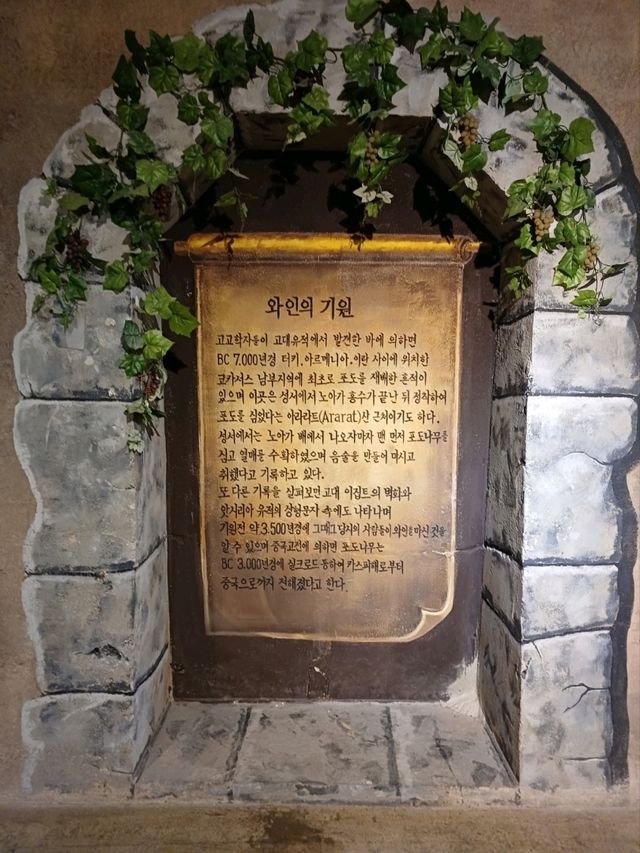 와인의 기원
고고학자들이 고대유적에서 발견한 바에 의하면
BC 7,000년경 터키, 아르메니아, 이란 사이에 위치한
코카서스 남부지역에 최초로 포도를 재배한 흔적이
있으며 이곳은 성서에서 노아가 홍수가 끝난 뒤 정착하여
포도를 심었다는 아라라트(Ararat)산 근처이기도 하다.
성서에서는 노아가 배에서 나오자마자 맨 먼저 포도나무를
심고 열매를 수확하였으며 음술을 만들어 마시고
취했다고 기록하고 있다.
또 다른 기록을 살펴보면 고대 이집트의 벽화와
앗시리아 유적의 상형문자 속에도 나타나며
기원전 약 3,500년경에 그때 당시의 사람들이 와인을 마신 것을
알 수 있으며 중국고전에 의하면 포도나무는
BC 3,000년경에 실크로드 통하여 카스피해로부터
중국으로까지 전해졌다고 한다.